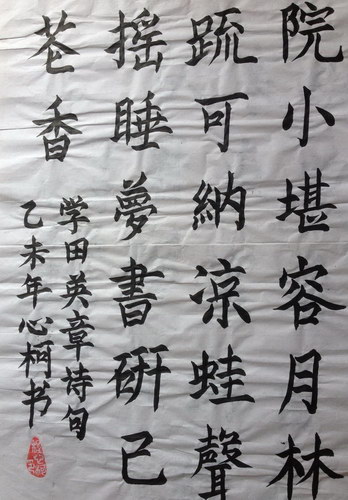 院小堪容月林
疏可納凉蛙聲
摇睡夢書研已
苍香
学田英章诗句
乙未年心柯书